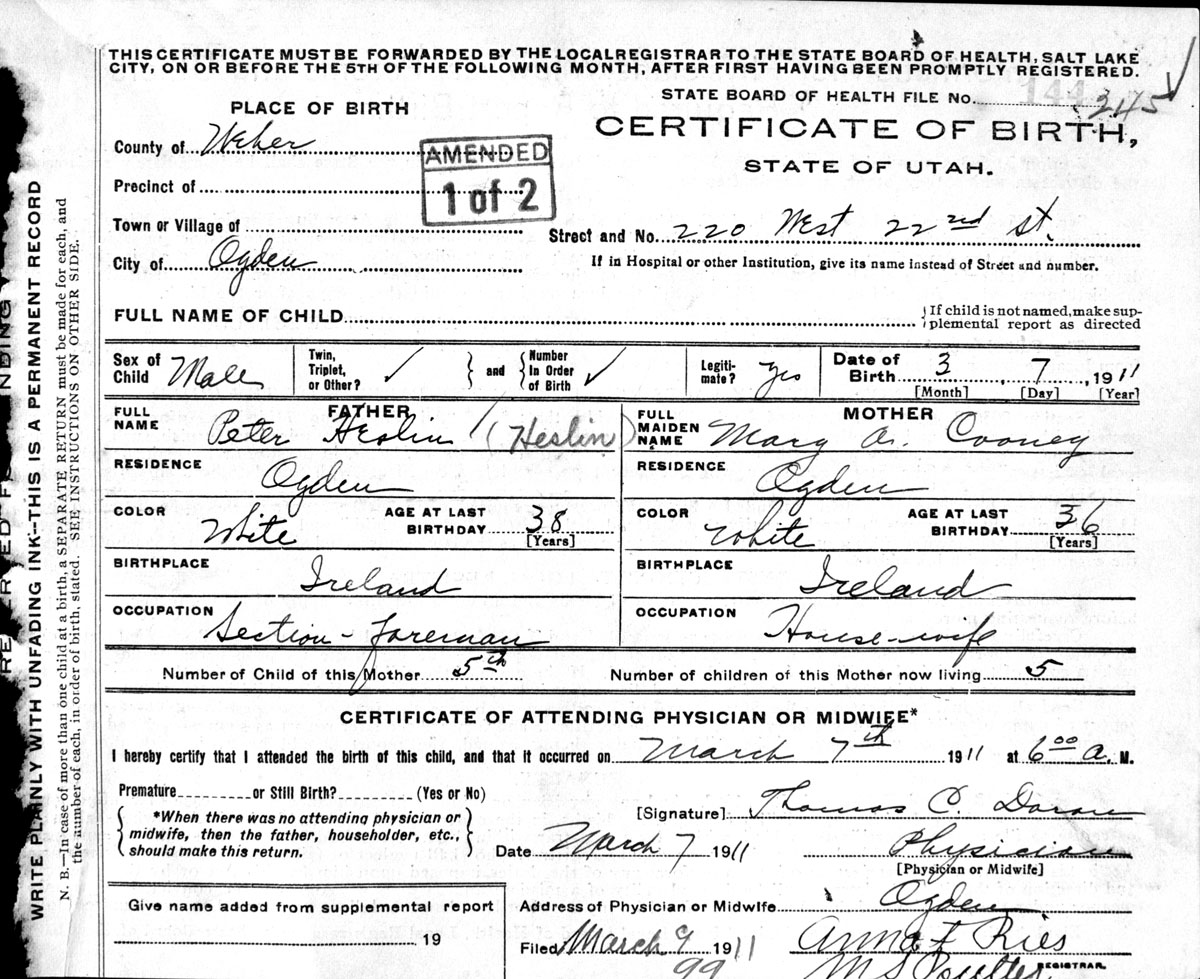 THIS CERTIFICATE MUST BE FORWARDED BY THE LOCAL REGISTRAR TO THE STATE BOARD OF HEALTH, SALT LAKE
CITY, ON OR BEFORE THE 5TH OF THE FOLLOWING MONTH, AFTER FIRST HAVING BEEN PROMPTLY REGISTERED.
STATE BOARD OF HEALTH FILE No. 345
PLACE OF BIRTH
CERTIFICATE OF BIRTH,
STATE OF UTAH.
County of Weber
AMENDED
1 of 2
Precinct of
Town or Village of
Street and No. 220 West 22nd St.
City of Ogden
If in Hospital or other Institution, give its name instead of Street and number.
FULL NAME OF CHILD
If child is not named, make sup-
plemental report as directed
Sex of Child Male
Twin, Triplet, or Other? ✓ and Number In Order of Birth ✓
Legiti-mate? Yes
Date of Birth 3, 7, 1911
[Month] [Day] [Year]
FATHER
FULL NAME Peter Heslin (Heslin)
RESIDENCE Ogden
COLOR White AGE AT LAST BIRTHDAY 38 [Years]
BIRTHPLACE Ireland
OCCUPATION Section-Foreman
MOTHER
FULL MAIDEN NAME Mary A. Cooney
RESIDENCE Ogden
COLOR White AGE AT LAST BIRTHDAY 36 [Years]
BIRTHPLACE Ireland
OCCUPATION House-wife
Number of Child of this Mother 5th Number of children of this Mother now living 5
CERTIFICATE OF ATTENDING PHYSICIAN OR MIDWIFE*
I hereby certify that I attended the birth of this child, and that it occurred on March 7th 1911 at 6 00 a. M.
Premature or Still Birth? (Yes or No)
*When there was no attending physician or
midwife, then the father, householder, etc.,
should make this return.
[Signature] Thomas C. Doran
Date March 7 1911 Physician
[Physician or Midwife]
Give name added from supplemental report
19
Address of Physician or Midwife Ogden
Filed March 9 1911 Anna F Ries
99
REGISTRAR.
WRITE PLAINLY WITH UNFADING INK--THIS IS A PERMANENT RECORD
N. B.—In case of more than one child at a birth, a SEPARATE RETURN must be made for each, and
the number of each, in order of birth, stated. SEE INSTRUCTIONS ON OTHER SIDE.